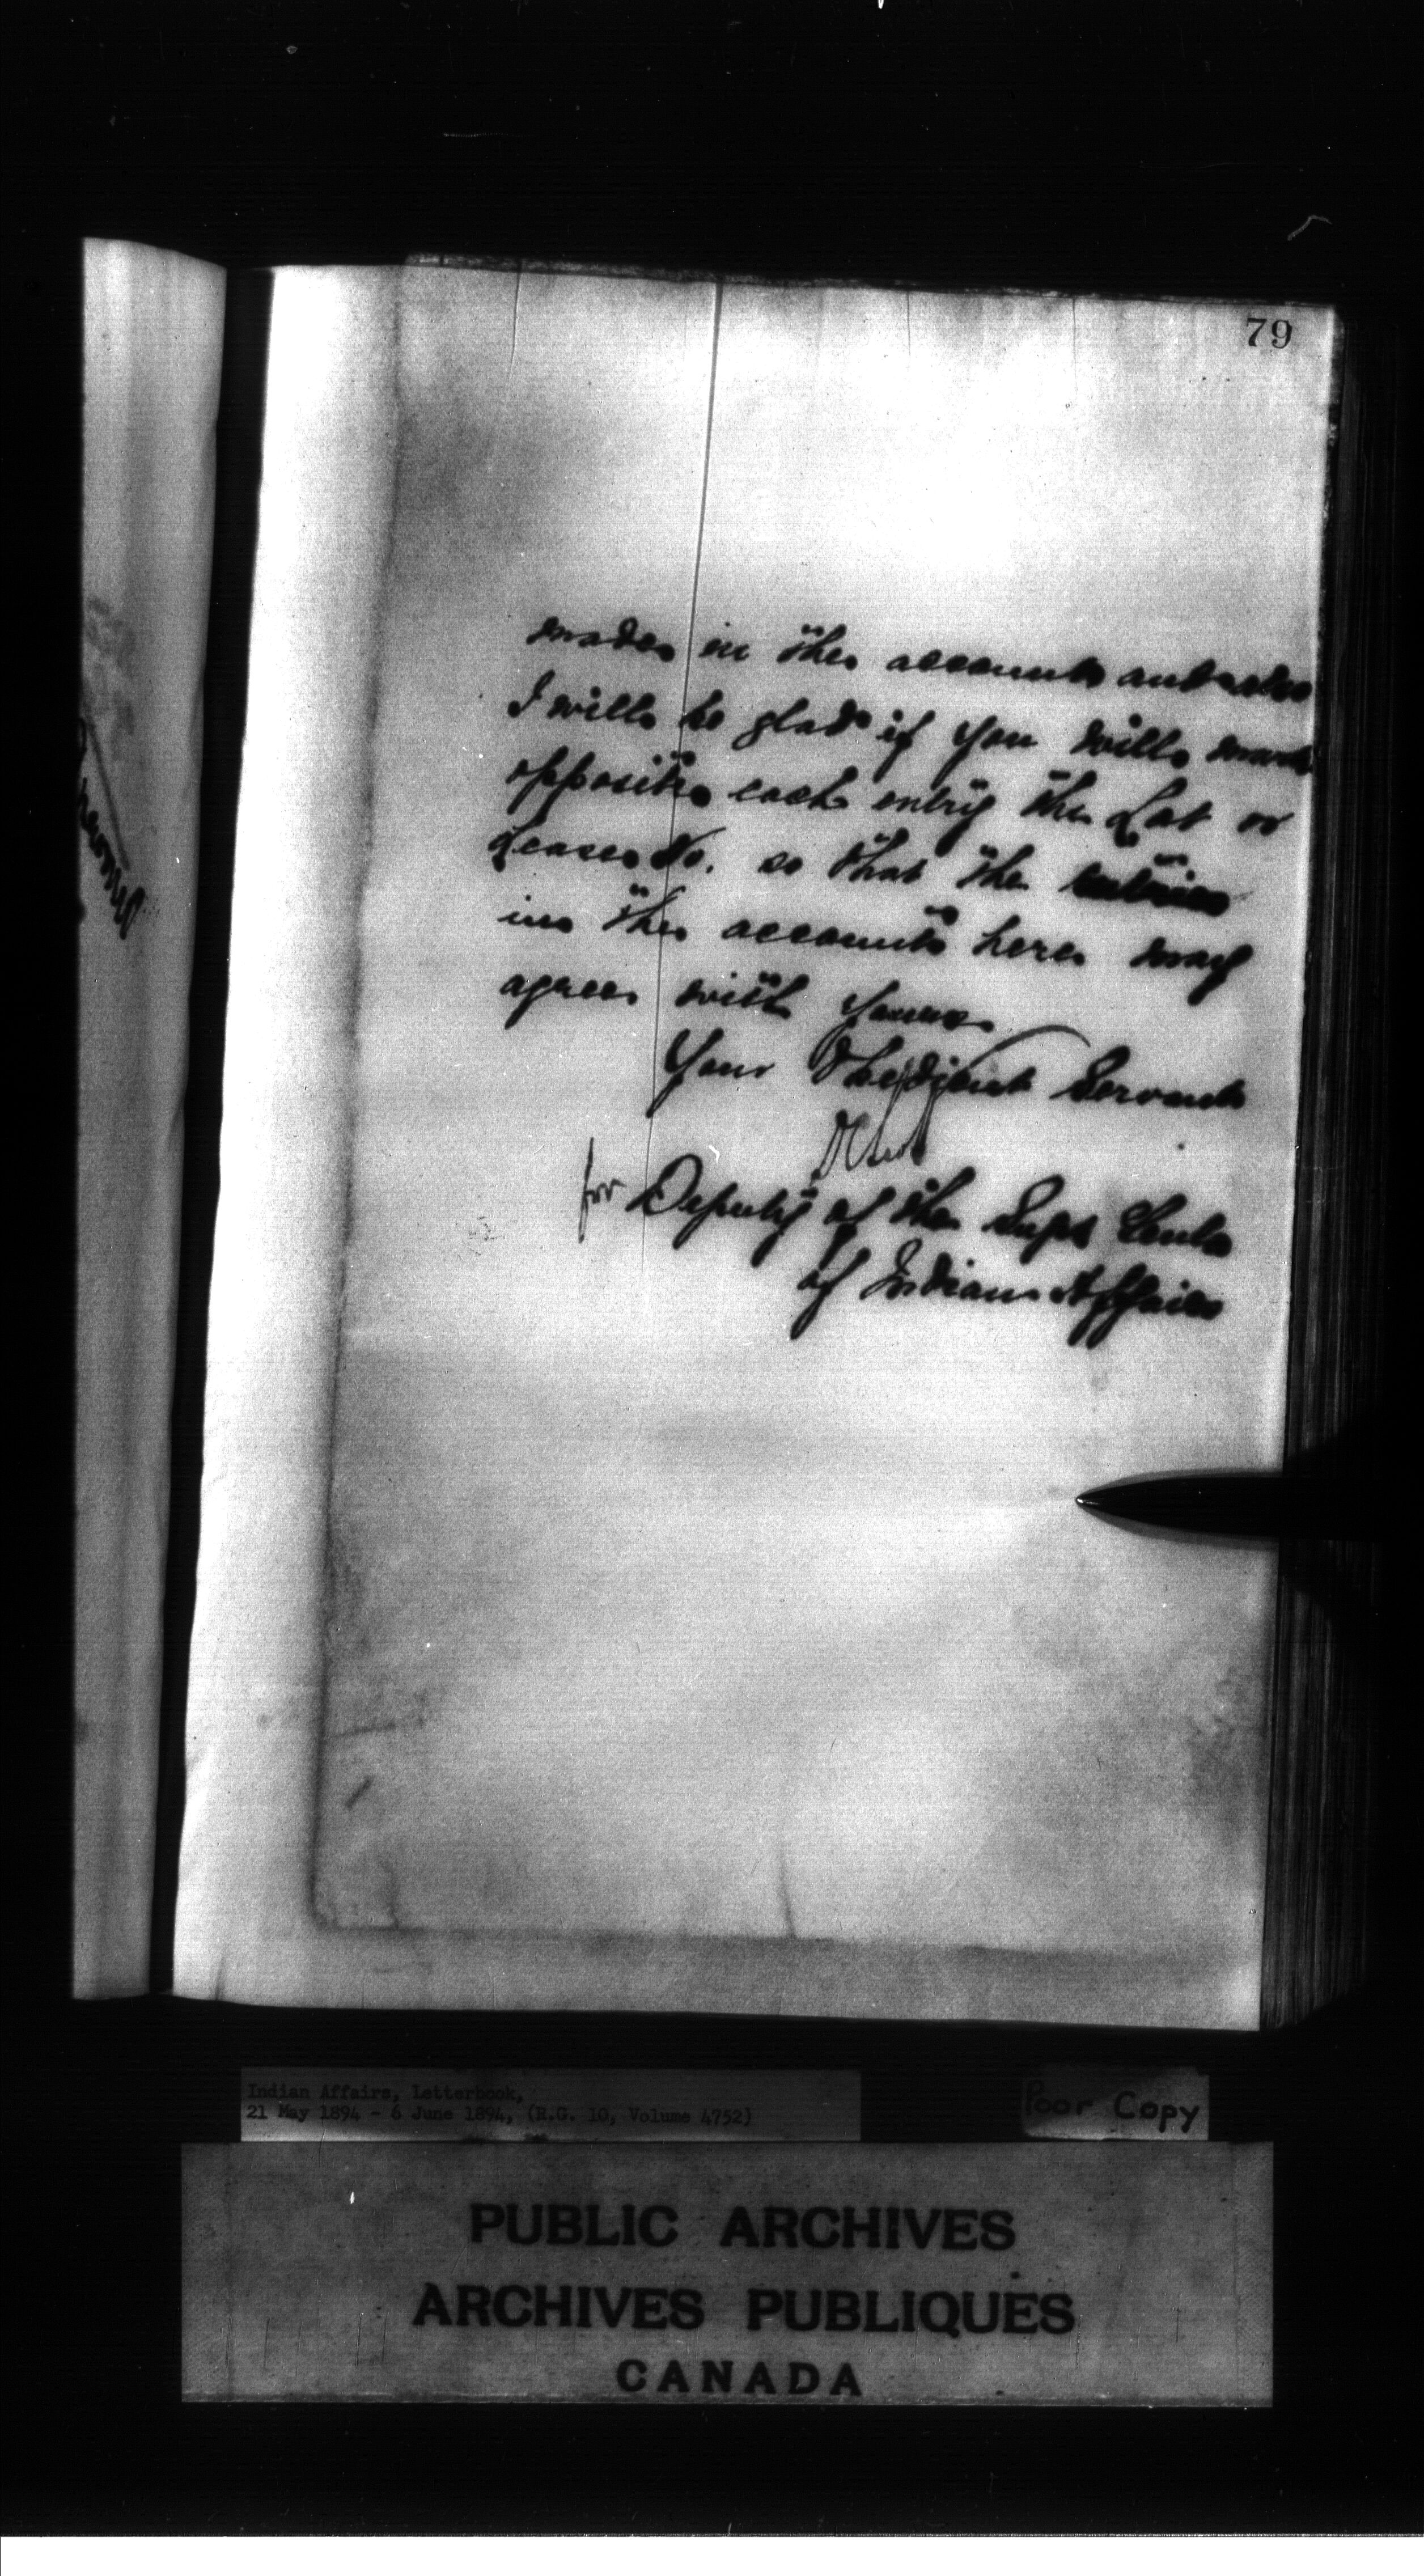 79
made in the accounts and also
I will be glad if you will mark
opposite each entry the Lot or
Lease No. so that the entries
in the accounts here may
agree with yours
Your Obedient Servant
for Deputy of the Supt Genl
of Indian Affairs
Indian Affairs, Letterbook,
21 May 1894 - 6 June 1894, (R.G. 10, Volume 4752)
Poor Copy
PUBLIC ARCHIVES
ARCHIVES PUBLIQUES
CANADA